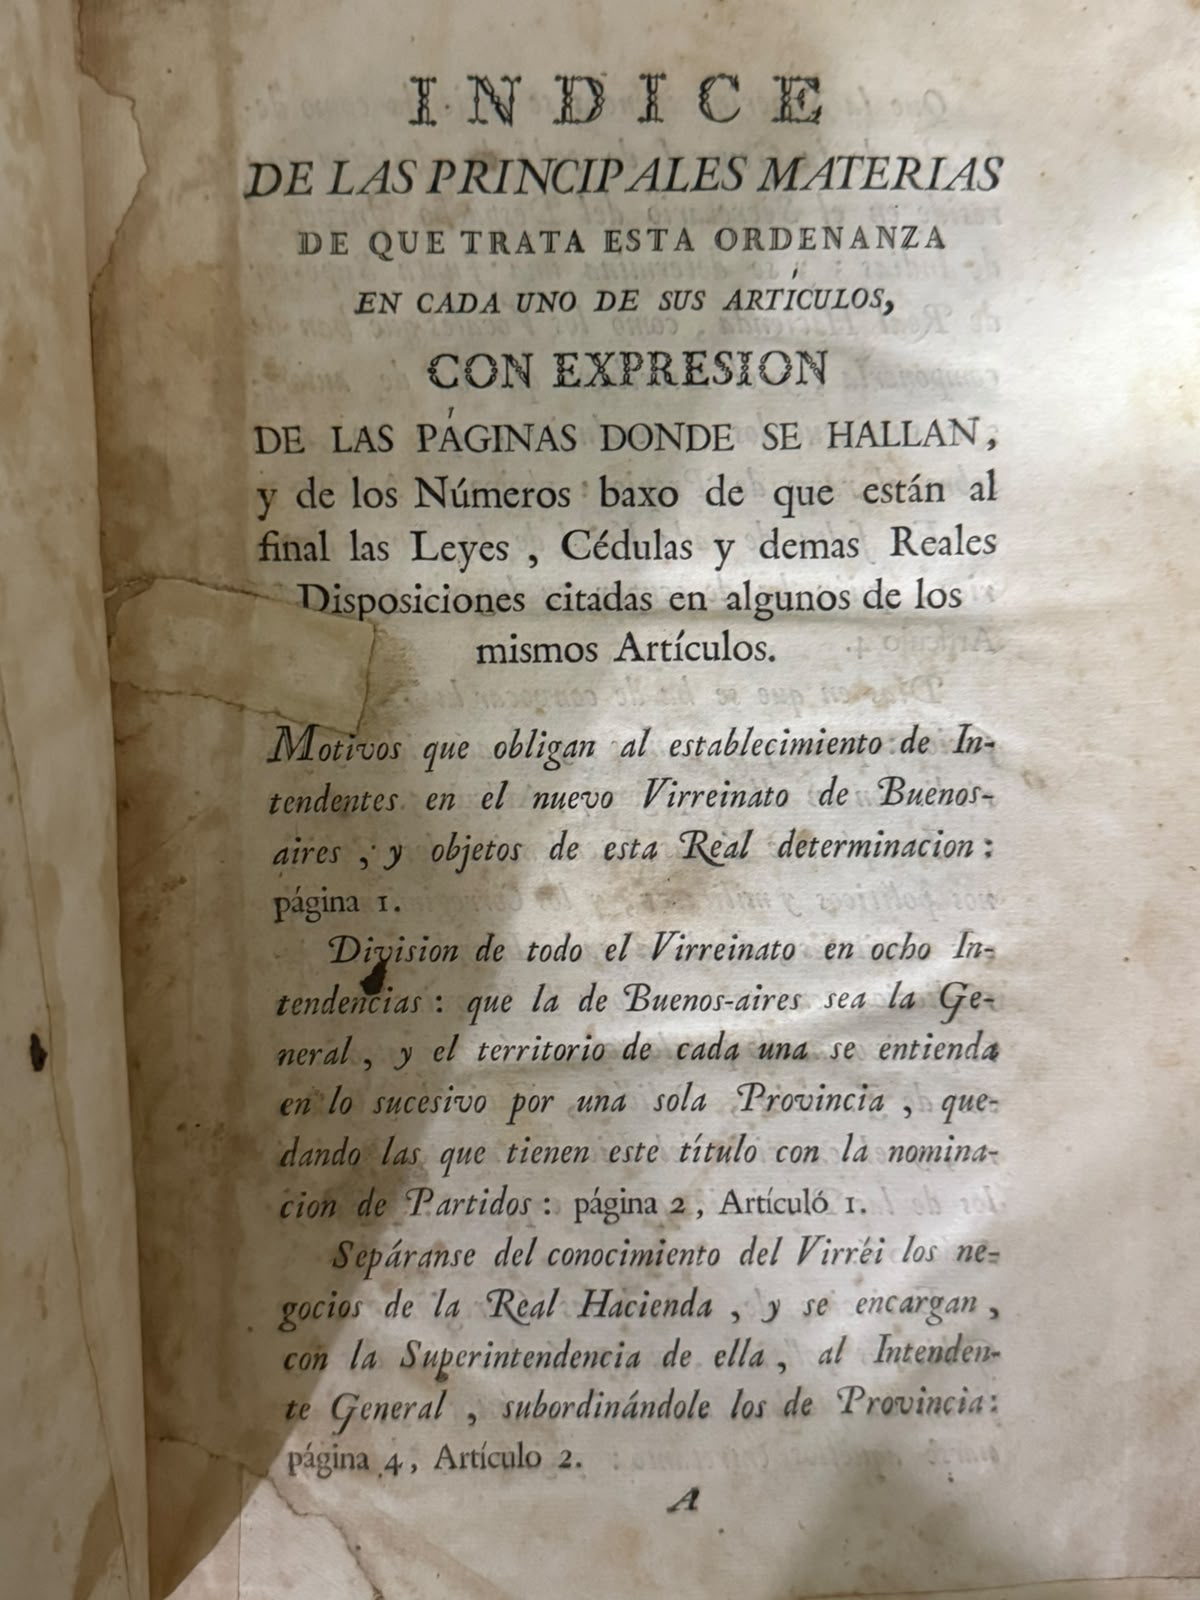 INDICE
DE LAS PRINCIPALES MATERIAS
DE QUE TRATA ESTA ORDENANZA
EN CADA UNO DE SUS ARTÍCULOS,
CON EXPRESION
DE LAS PÁGINAS DONDE SE HALLAN,
y de los Números baxo de que están al
final las Leyes , Cédulas y demas Reales
Disposiciones citadas en algunos de los
mismos Artículos.
Motivos que obligan al establecimiento de In-
tendentes en el nuevo Virreinato de Buenos-
aires , y objetos de esta Real determinacion :
página 1.
Division de todo el Virreinato en ocho In-
tendencias : que la de Buenos-aires sea la Ge-
neral , y el territorio de cada una se entienda
en lo sucesivo por una sola Provincia , que-
dando las que tienen este título con la nomina-
cion de Partidos : página 2 , Artículó 1.
Sepáranse del conocimiento del Virréi los ne-
gocios de la Real Hacienda , y se encargan ,
con la Superintendencia de ella , al Intenden-
te General , subordinándole los de Provincia :
página 4 , Artículo 2.
A